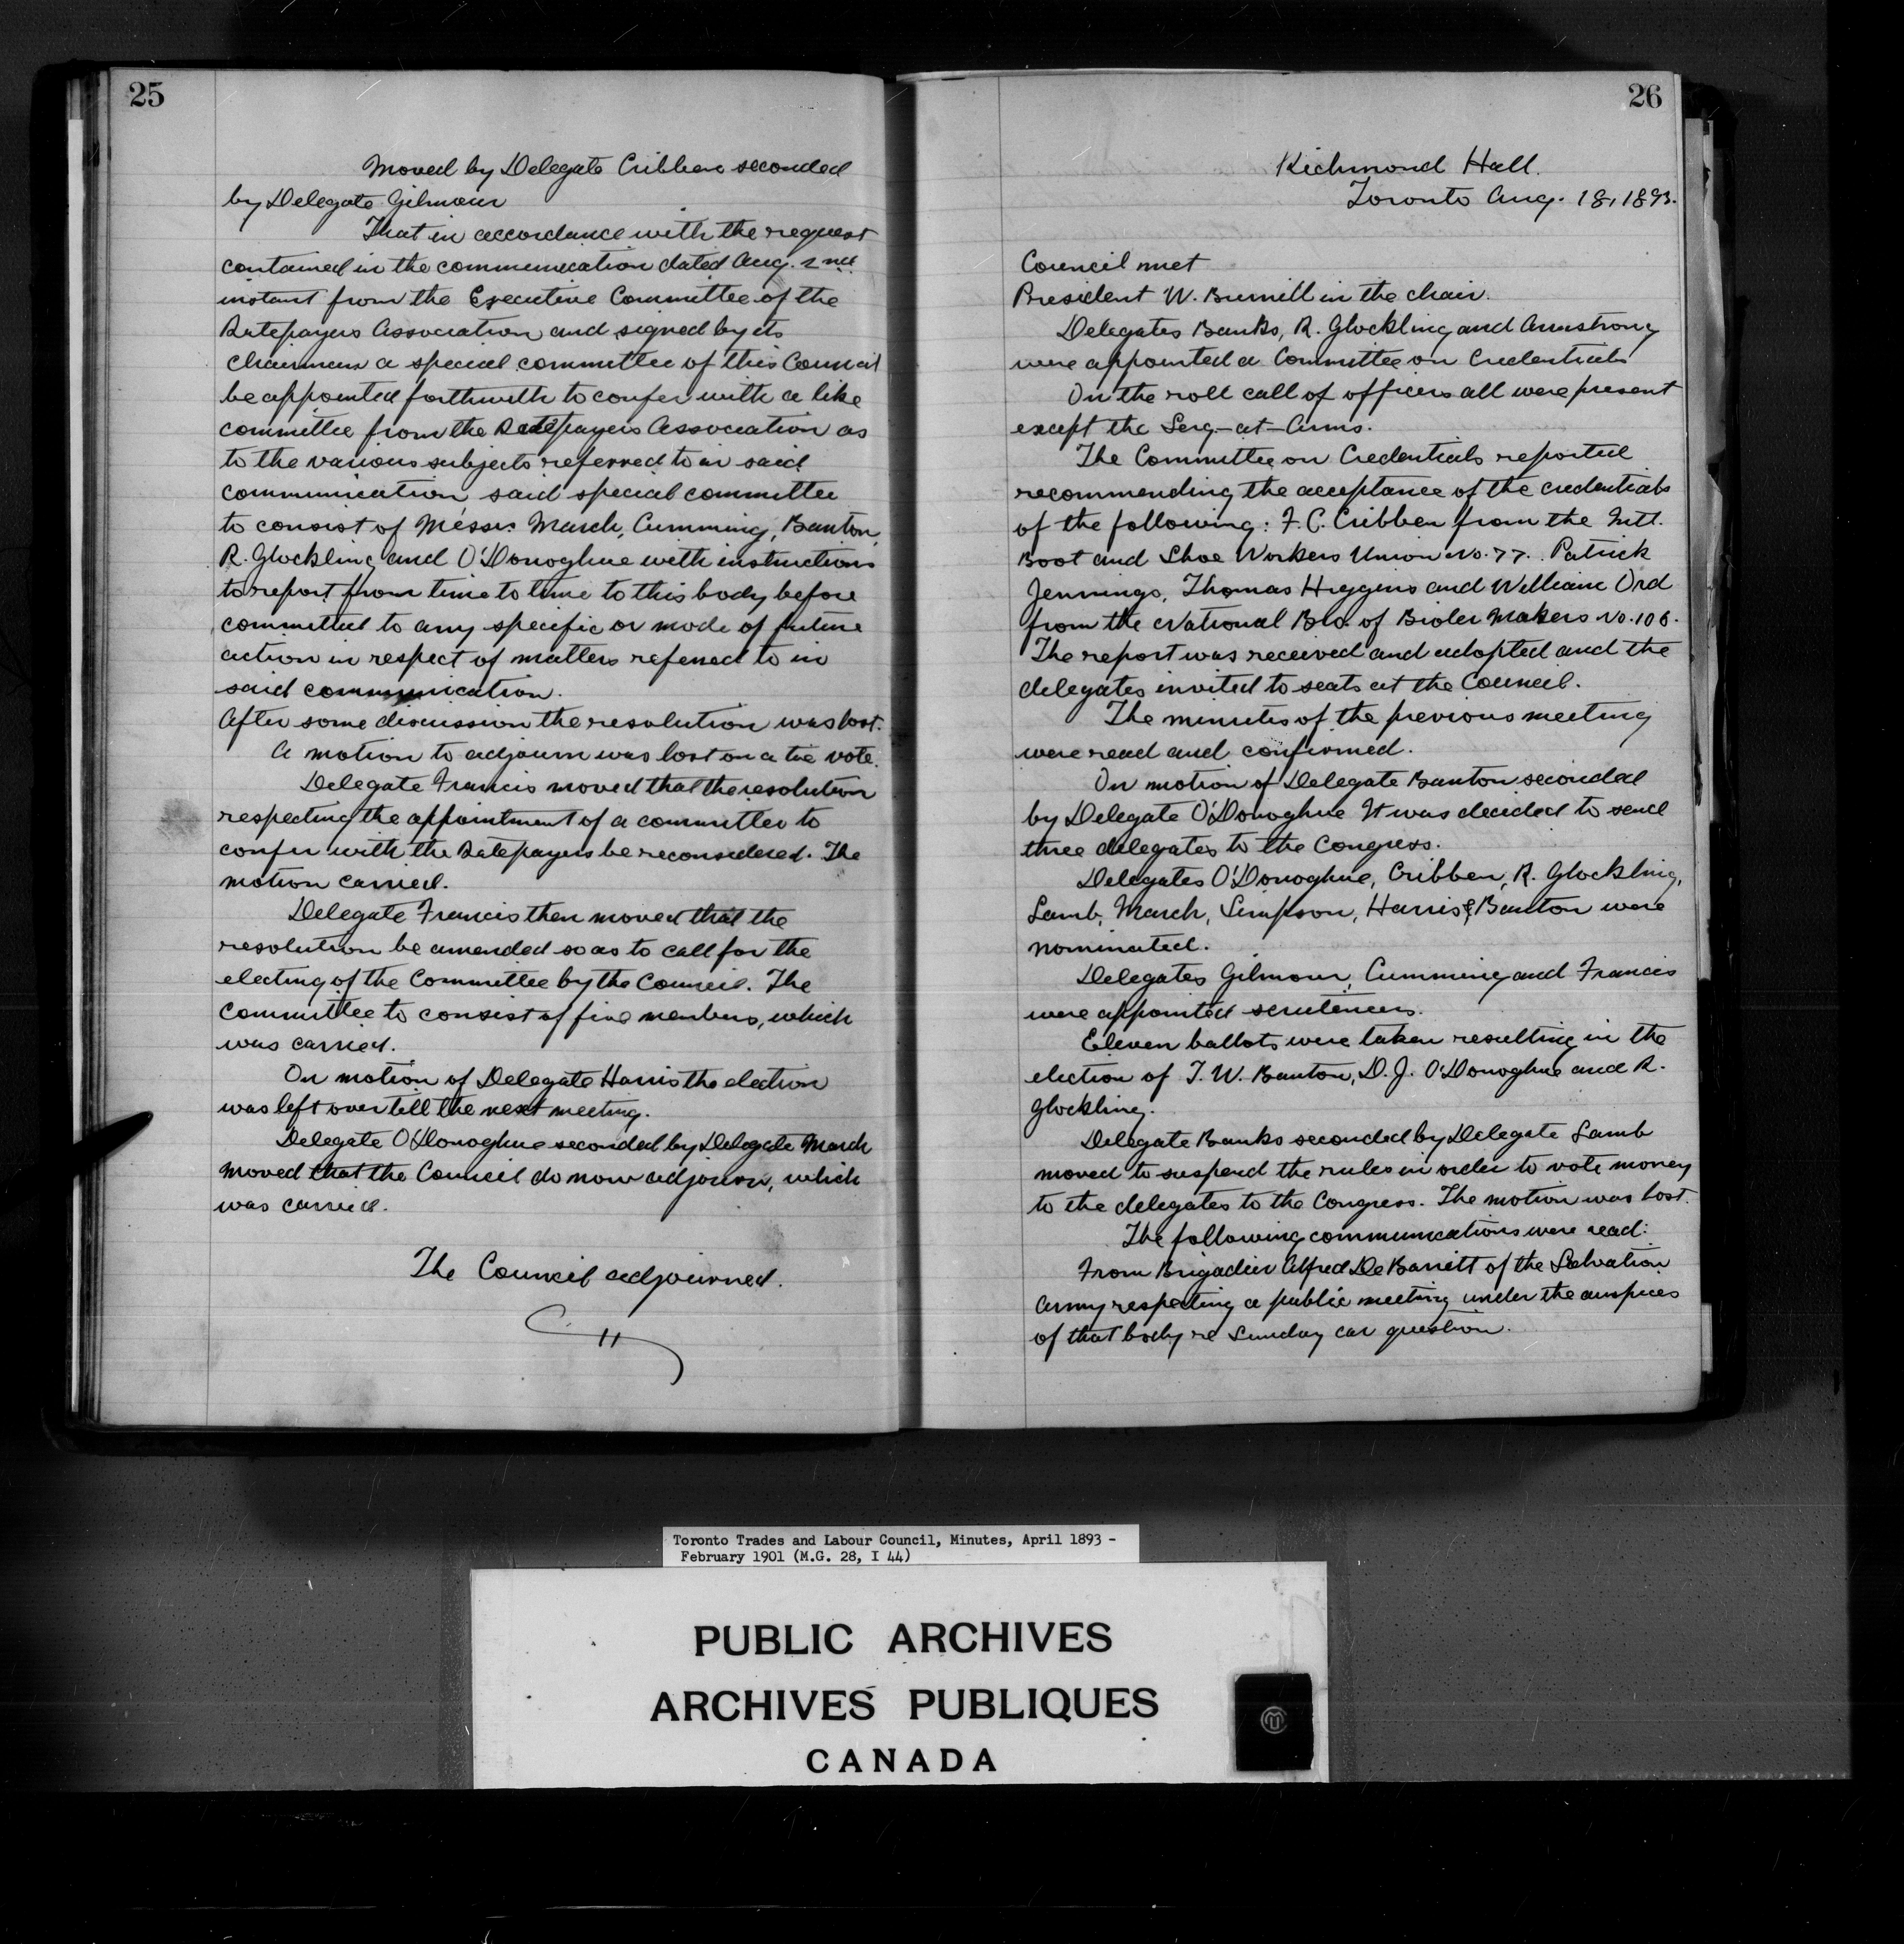 25
Moved by Delegate Cribben seconded
by Delegate Gilmour
That in accordance with the request
contained in the communication dated Aug. 2nd
instant from the Executive Committee of the
Ratepayers Association and signed by its
Chairman a special committee of this Council
be appointed forthwith to confer with a like
committee from the Ratepayers Association as
to the various subjects referred to in said
communication said special committee
to consist of Messrs March, Cumming, Banton,
R. Glockling and O'Donoghue with instructions
to report from time to time to this body before
committed to any specific or mode of future
action in respect of matters referred to in
said communication.
After some discussion the resolution was lost.
A motion to adjourn was lost on a tie vote.
Delegate Francis moved that the resolution
respecting the appointment of a committee to
confer with the Ratepayers be reconsidered. The
motion carried.
Delegate Francis then moved that the
resolution be amended so as to call for the
electing of the Committee by the Council. The
Committee to consist of five members, which
was carried.
On motion of Delegate Harris the election
was left over till the next meeting.
Delegate O'Donoghue seconded by Delegate March
moved that the Council do now adjourn, which
was carried.
The Council adjourned.
26
Richmond Hall.
Toronto Aug. 18, 1893.
Council met
President W. Burnill in the chair.
Delegates Banks, R. Glockling and Armstrong
were appointed a Committee on Credentials
On the roll call of officers all were present
except the Serg-at-Arms.
The Committee on Credentials reported
recommending the acceptance of the credentials
of the following: F. C. Cribben from the Intl.
Boot and Shoe Workers Union No. 77. Patrick
Jennings, Thomas Higgins and William Ord
from the National Bro. of Bioler Makers No. 106.
The report was received and adopted and the
delegates invited to seats at the Council.
The minutes of the previous meeting
were read and confirmed.
On motion of Delegate Banton seconded
by Delegate O'Donoghue It was decided to send
three delegates to the Congress.
Delegates O'Donoghue, Cribben, R. Glockling,
Lamb, March, Simpson, Harris & Banton were
nominated.
Delegates Gilmour, Cumming and Francis
were appointed scrutineers.
Eleven ballots were taken resulting in the
election of T. W. Banton, D. J. O'Donoghue and R.
Glockling.
Delegate Banks seconded by Delegate Lamb
moved to suspend the rules in order to vote money
to the delegates to the Congress. The motion was lost.
The following communications were read:
From Brigadier Alfred De Barritt of the Salvation
Army respecting a public meeting under the auspices
of that body re Sunday car question.
Toronto Trades and Labour Council, Minutes, April 1893 -
February 1901 (M.G. 28, I 44)
PUBLIC ARCHIVES
ARCHIVES PUBLIQUES
CANADA